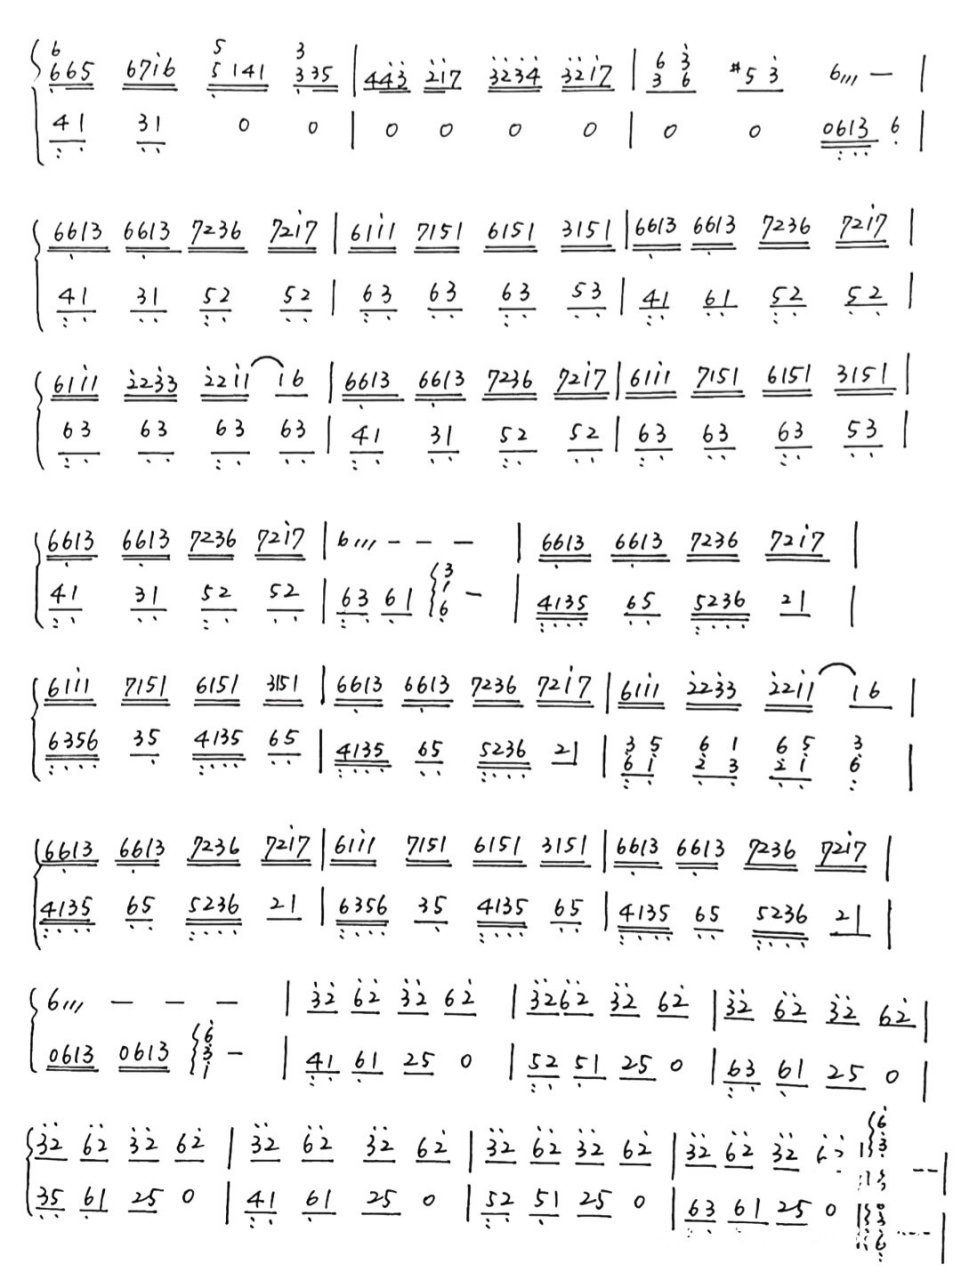 6 5 3
665 671̇6 5 141 335 | 443̇ 2̇1̇7 3̇2̇3̇4̇ 3̇2̇1̇7 | 6 3̇
3 6 #5 3̇ 6/// — |
41 31 0 0 | 0 0 0 0 | 0 0 0613 6 |
6613 6613 7236 721̇7 | 611̇1 7151 6151 3151 | 6613 6613 7236 721̇7 |
41 31 52 52 | 63 63 63 53 | 41 61 52 52 |
611̇1̇ 2̇23̇3 2̇21̇1 1̇6 | 6613 6613 7236 721̇7 | 611̇1 7151 6151 3151 |
63 63 63 63 | 41 31 52 52 | 63 63 63 53 |
6613 6613 7236 721̇7 | 6/// — — — | 6613 6613 7236 721̇7 |
41 31 52 52 | 63 61 3 1 6 — | 4135 65 5236 21 |
611̇1 7151 6151 3151 | 6613 6613 7236 721̇7 | 611̇1 2̇23̇3 2̇21̇1 1̇6 |
6356 35 4135 65 | 4135 65 5236 21 | 3 5 6 1 6 5 3
6 1 2 3 2 1 6 |
6613 6613 7236 721̇7 | 611̇1 7151 6151 3151 | 6613 6613 7236 721̇7 |
4135 65 5236 21 | 6356 35 4135 65 | 4135 65 5236 21 |
6/// — — — | 3̇2̇ 6̇2̇ 3̇2̇ 62̇ | 3̇2̇6̇2̇ 3̇2̇ 62̇ | 3̇2̇ 6̇2̇ 3̇2̇ 62̇ |
0613 0613 6̇ 3 1 — | 41 61 25 0 | 52 51 25 0 | 63 61 25 0 |
3̇2̇ 6̇2̇ 3̇2̇ 62̇ | 3̇2̇ 6̇2̇ 3̇2̇ 62̇ | 3̇2̇ 6̇2̇ 3̇2̇ 62̇ | 3̇2̇ 6̇2̇ 3̇2̇ |
35 61 25 0 | 41 61 25 0 | 52 51 25 0 | 63 61 25 0